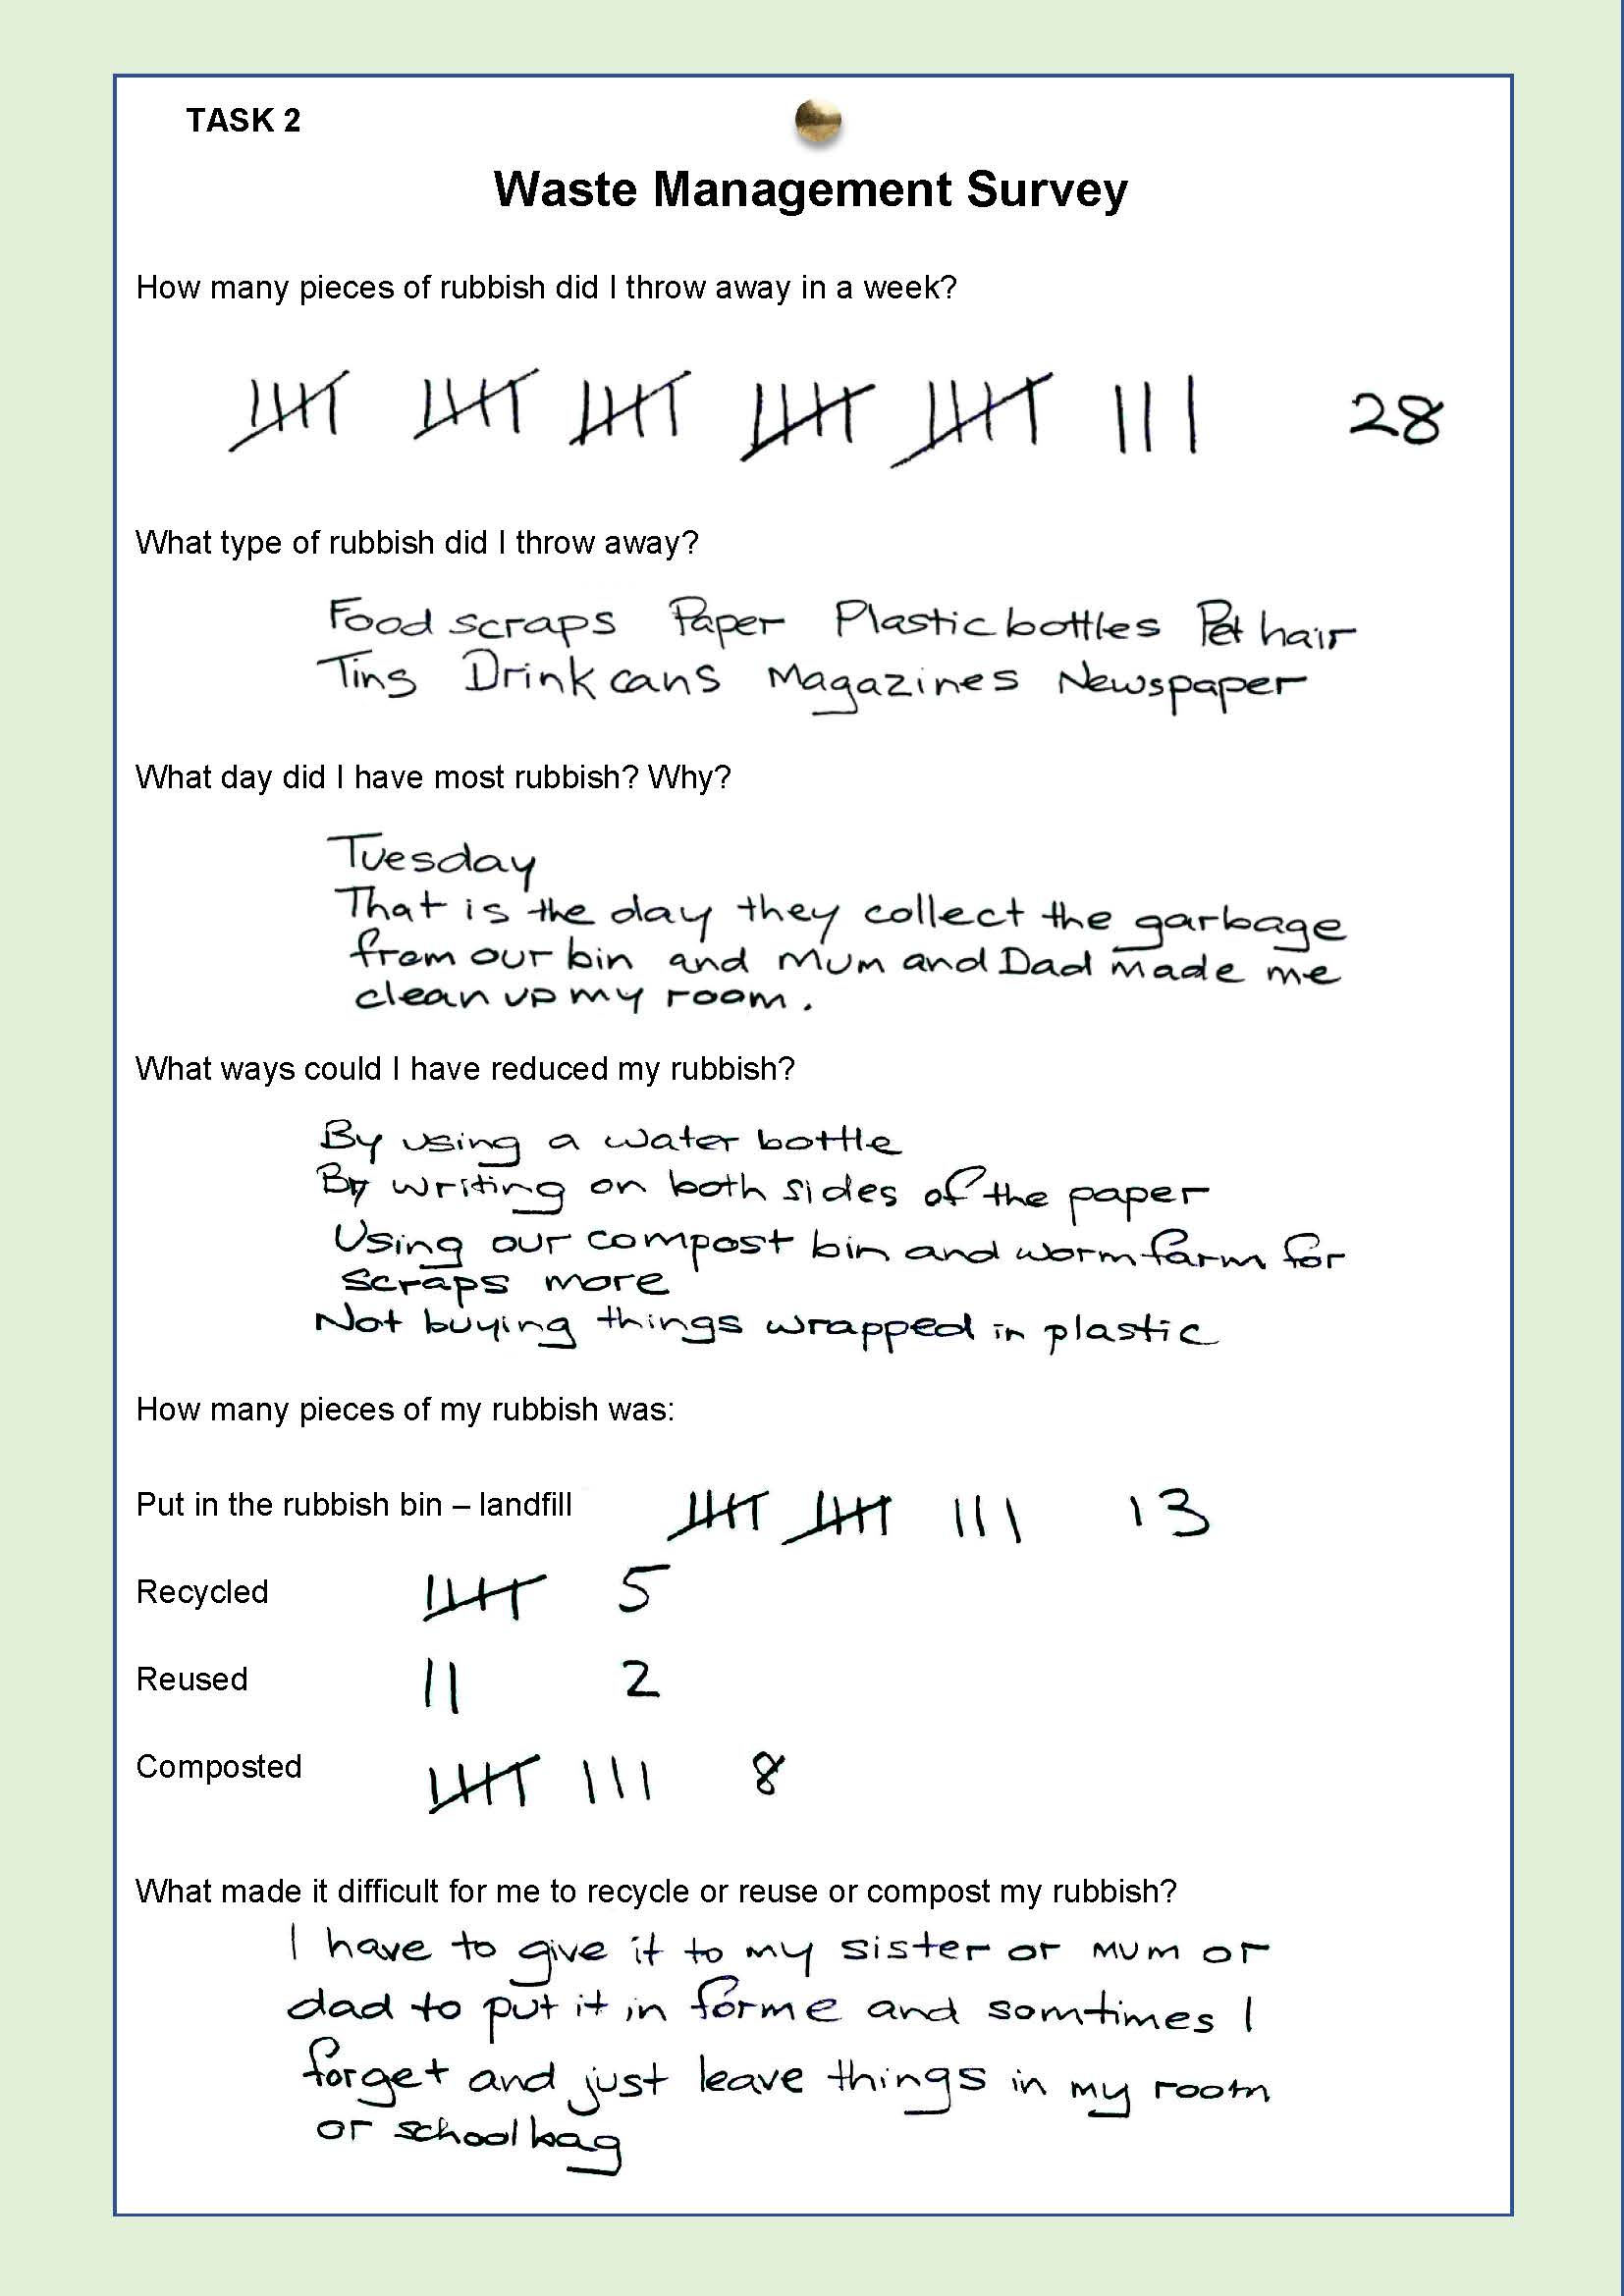 TASK 2
Waste Management Survey
How many pieces of rubbish did I throw away in a week?
28
What type of rubbish did I throw away?
Food scraps Paper Plastic bottles Pet hair
Tins Drink cans Magazines Newspaper
What day did I have most rubbish? Why?
Tuesday
That is the day they collect the garbage
from our bin and Mum and Dad made me
clean up my room.
What ways could I have reduced my rubbish?
By using a water bottle
By writing on both sides of the paper
Using our compost bin and worm farm for
scraps more
Not buying things wrapped in plastic
How many pieces of my rubbish was:
Put in the rubbish bin – landfill 13
Recycled 5
Reused 2
Composted 8
What made it difficult for me to recycle or reuse or compost my rubbish?
I have to give it to my sister or mum or
dad to put it in for me and somtimes I
forget and just leave things in my room
or school bag